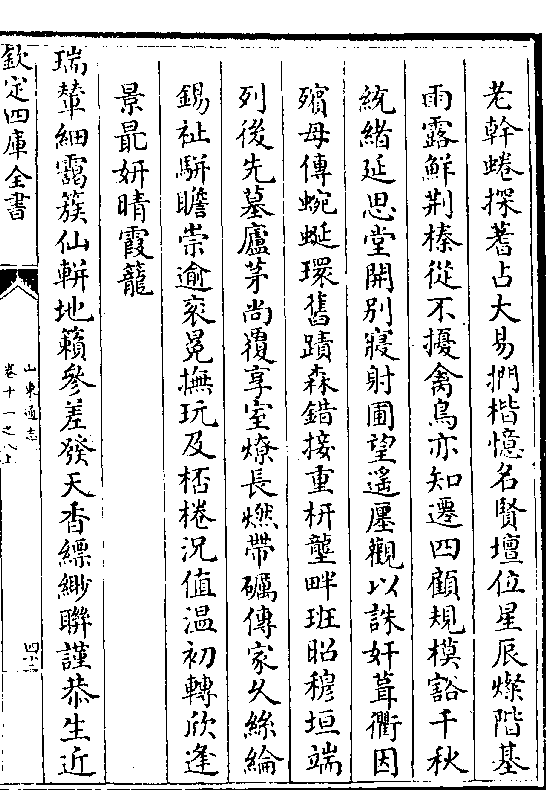 老幹蜷探蓍占大易捫楷憶名賢壇位星辰燦階基
雨露鮮荆榛從不擾禽鳥亦知遷四顧規模豁千秋
統緒延思堂開別寢射圃望遥廛觀以誅奸葺衢因
殯母傳蜿蜒環舊蹟森錯接重枅壟畔班昭穆垣端
列後先墓廬茅尚覆享室燎長燃帶礪傳家乆絲綸
錫祉駢瞻崇逾衮冕撫玩及桮棬況值温初轉欣逢
景最妍晴霞籠
瑞輦細靄簇仙軿地籟參差發天香縹緲聯謹恭生近
欽定四庫全書
山東通志
卷十一之八上